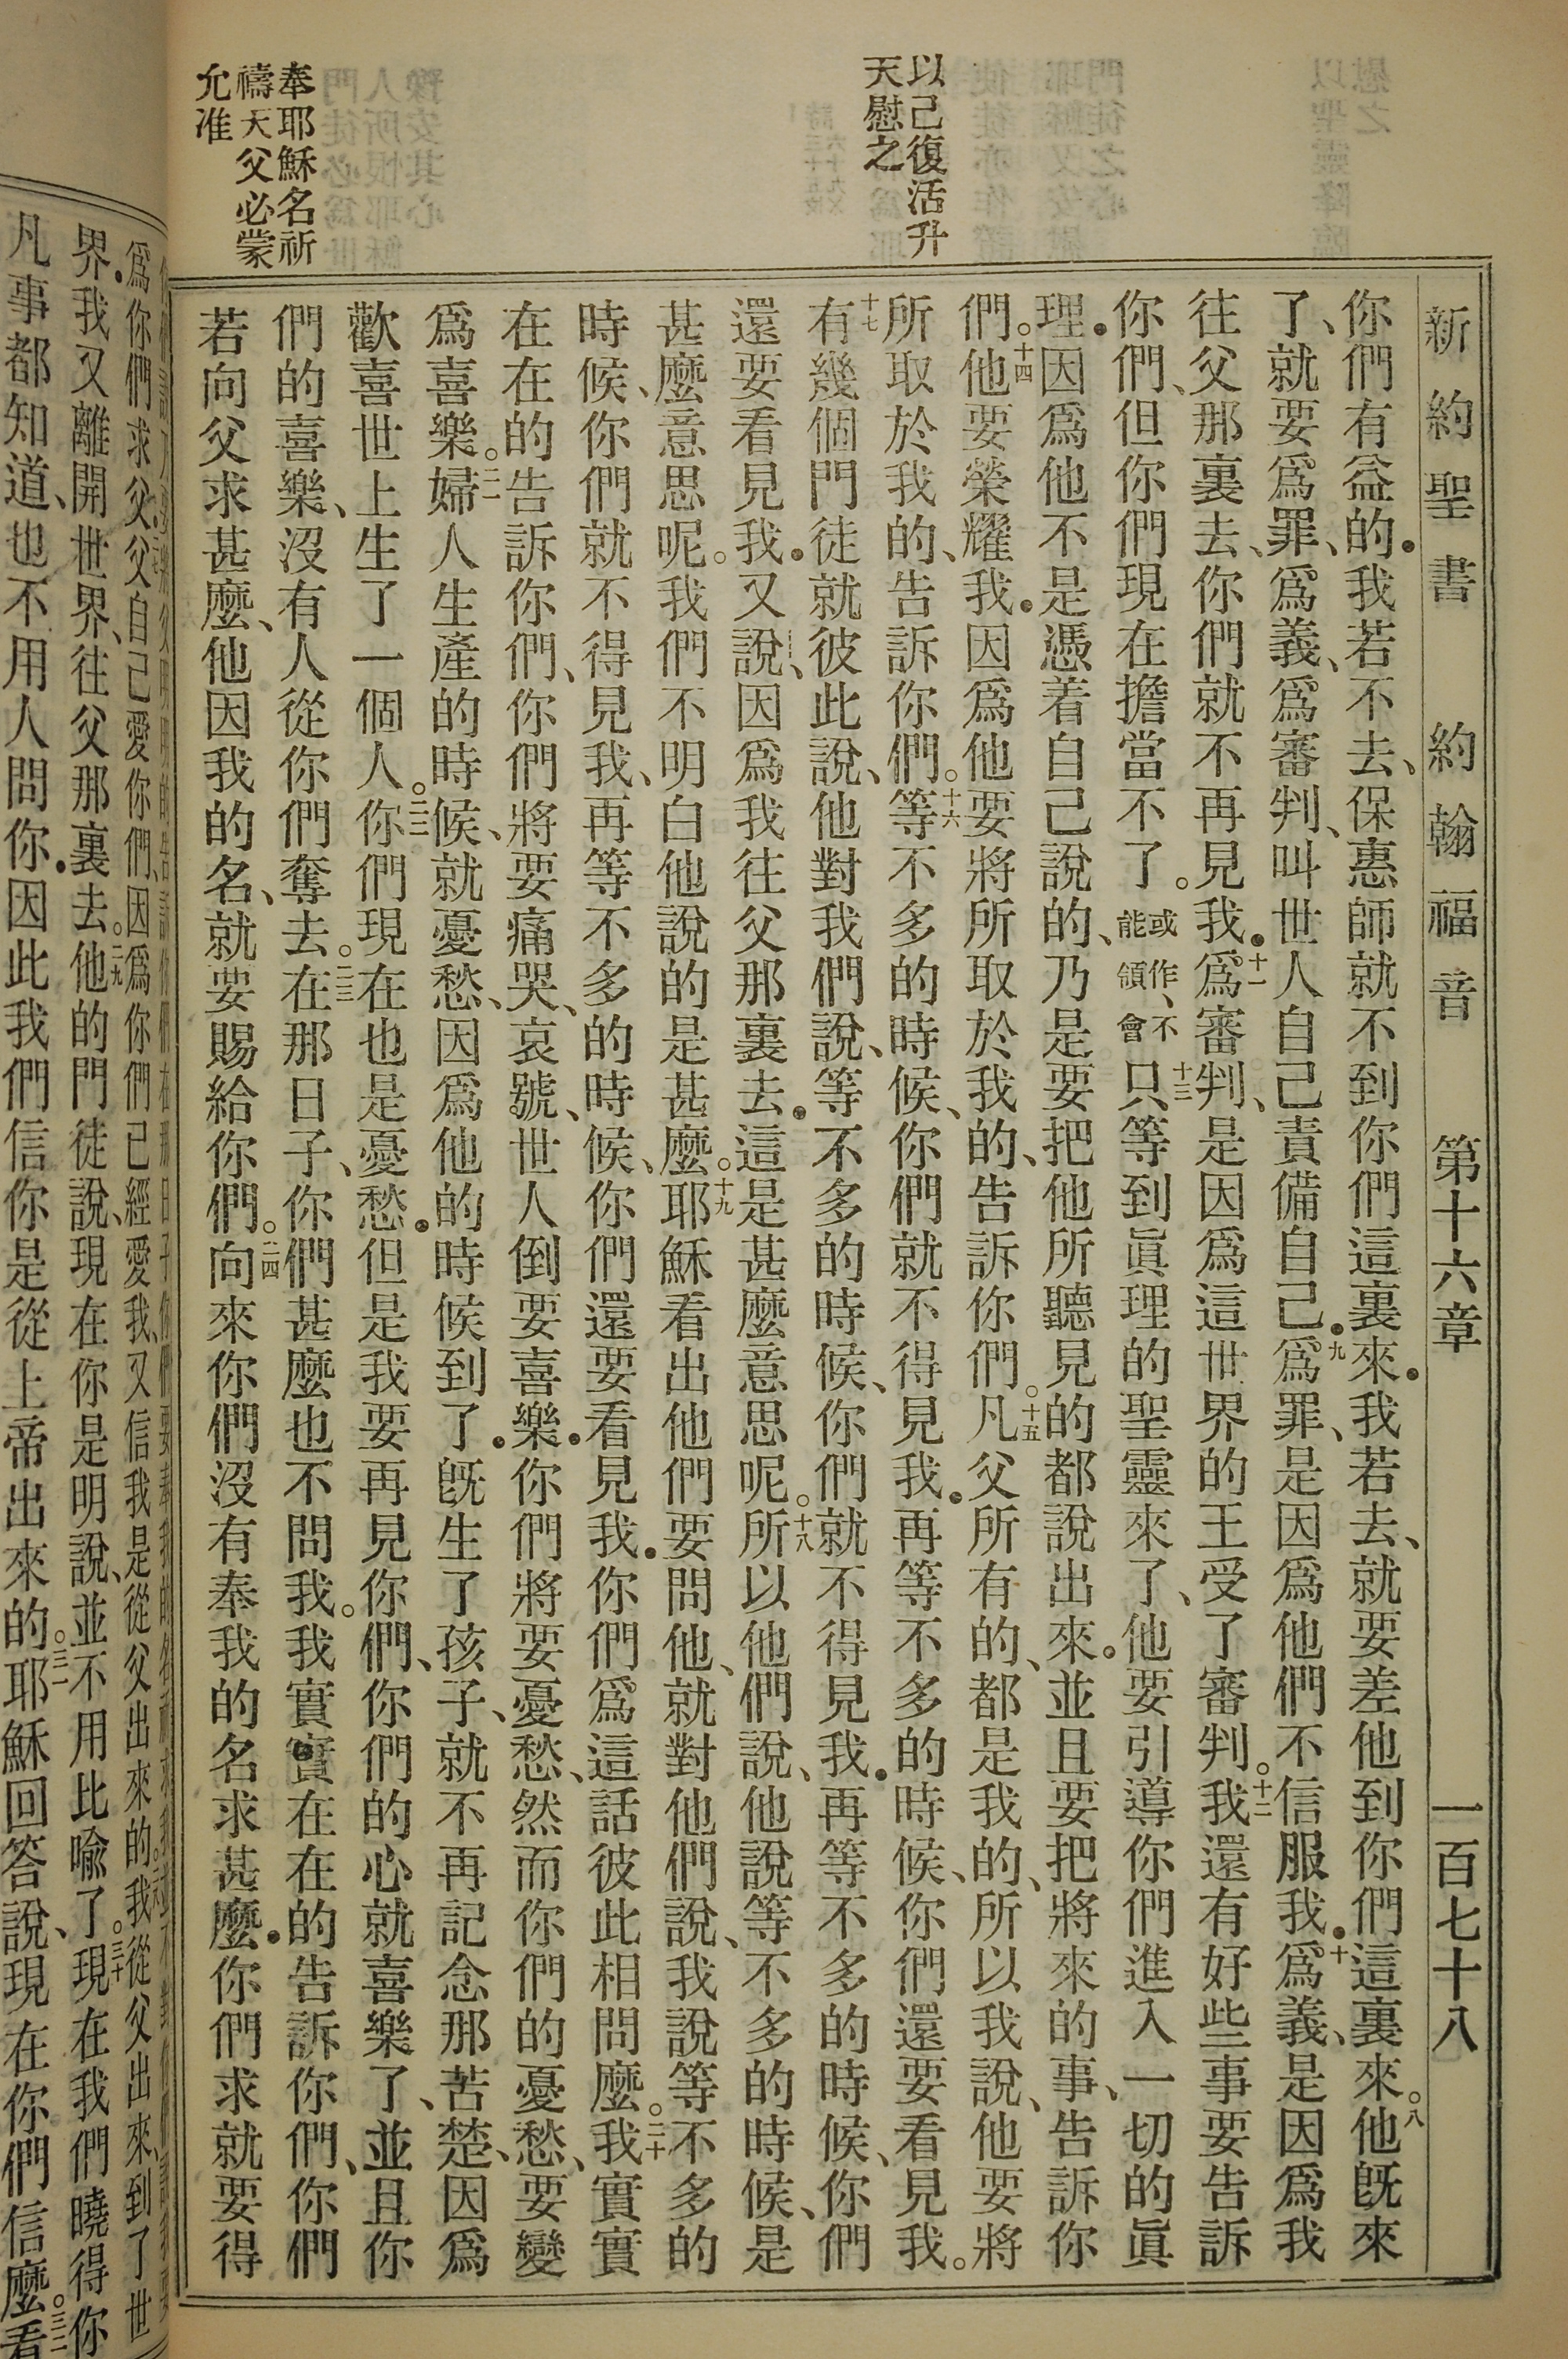 新約聖書 約翰福音 第十六章 一百七十八
以己復活升
天慰之
奉耶穌名祈
禱天父必蒙
允准
你們有益的．我若不去、保惠師就不到你們這裏來．我若去、就要差他到你們這裏來。八他旣來
了、就要爲罪、爲義、爲審判、叫世人自己責備自己．九爲罪、是因爲他們不信服我．十爲義、是因爲我
往父那裏去、你們就不再見我．十一爲審判、是因爲這世界的王受了審判。十二我還有好些事要告訴
你們、但你們現在擔當不了。或作、不能領會十三只等到眞理的聖靈來了、他要引導你們進入一切的眞
理．因爲他不是憑着自己說的、乃是要把他所聽見的都說出來．並且要把將來的事、告訴你
們。十四他要榮耀我．因爲他要將所取於我的、告訴你們。十五凡父所有的、都是我的、所以我說、他要將
所取於我的、告訴你們。十六等不多的時候、你們就不得見我．再等不多的時候、你們還要看見我。
十七有幾個門徒就彼此說、他對我們說、等不多的時候、你們就不得見我．再等不多的時候、你們
還要看見我．又說、因爲我往父那裏去．這是甚麼意思呢。十八所以他們說、他說等不多的時候、是
甚麼意思呢。我們不明白他說的是甚麼。十九耶穌看出他們要問他、就對他們說、我說等不多的
時候、你們就不得見我、再等不多的時候、你們還要看見我．你們爲這話彼此相問麼。二十我實實
在在的告訴你們、你們將要痛哭、哀號、世人倒要喜樂．你們將要憂愁、然而你們的憂愁、要變
爲喜樂。二一婦人生產的時候、就憂愁、因爲他的時候到了．旣生了孩子、就不再記念那苦楚、因爲
歡喜世上生了一個人。二二你們現在也是憂愁．但是我要再見你們、你們的心就喜樂了、並且你
們的喜樂、沒有人從你們奪去。二三在那日子、你們甚麼也不問我。我實實在在的告訴你們、你們
若向父求甚麼、他因我的名、就要賜給你們。二四向來你們沒有奉我的名求甚麼．你們求就要得
爲你們求父．父自己愛你們、因爲你們已經愛我、又信我是從父出來的。我從父出來、到了世
界．我又離開世界、往父那裏去。二九他的門徒說、現在你是明說、並不用比喩了。三十現在我們曉得你
凡事都知道、也不用人問你．因此我們信你是從上帝出來的。三一耶穌回答說、現在你們信麼。三二看